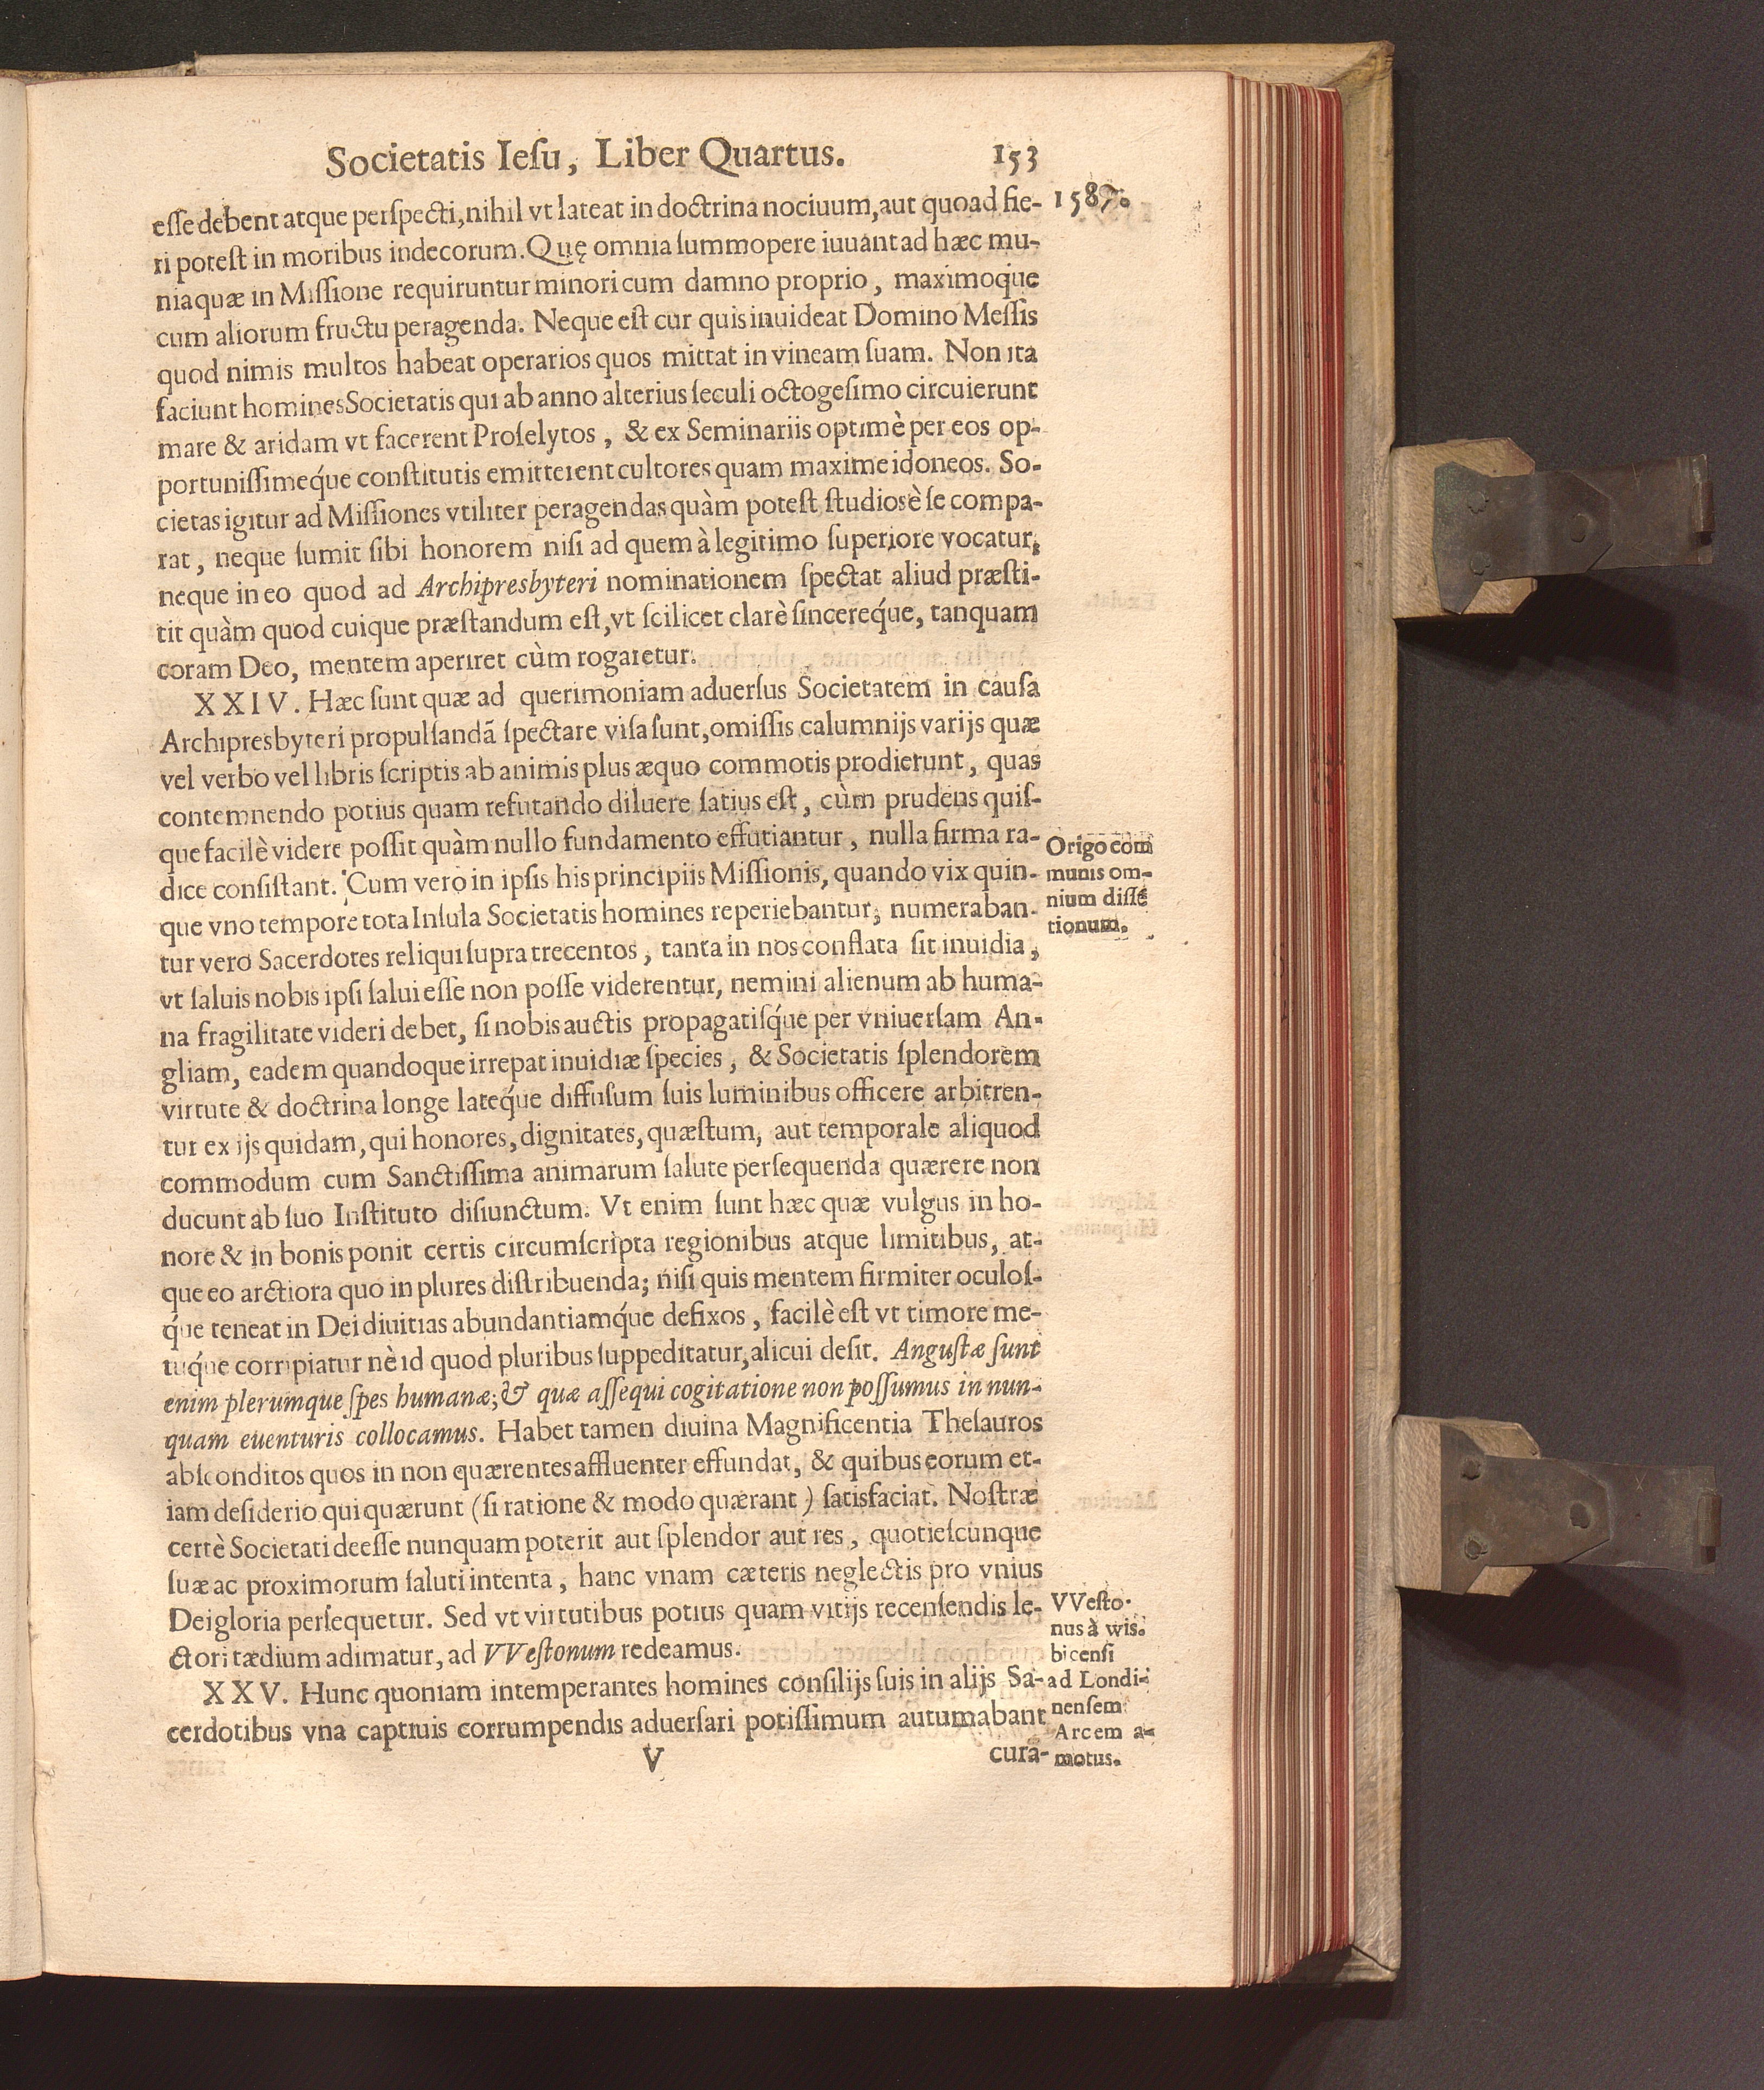 Societatis Iesu, Liber Quartus. 153
1587.
esse debent atque perspecti, nihil vt lateat in doctrina nociuum, aut quoad fie-
ri potest in moribus indecorum. Quę omnia summopere iuuant ad hæc mu-
nia quæ in Missione requiruntur minori cum damno proprio, maximoque
cum aliorum fructu peragenda. Neque est cur quis inuideat Domino Messis
quod nimis multos habeat operarios quos mittat in vineam suam. Non ita
faciunt homines Societatis qui ab anno alterius seculi octogesimo circuierunt
mare & aridam vt facerent Proselytos, & ex Seminariis optimè per eos op-
portunissimeq́ue constitutis emitterent cultores quam maxime idoneos. So-
cietas igitur ad Missiones vtiliter peragendas quàm potest studiosè se compa-
rat, neque sumit sibi honorem nisi ad quem à legitimo superiore vocatur;
neque in eo quod ad Archipresbyteri nominationem spectat aliud præsti-
tit quàm quod cuique præstandum est, vt scilicet clarè sincereq́ue, tanquam
coram Deo, mentem aperiret cùm rogaretur.
XXIV. Hæc sunt quæ ad querimoniam aduersus Societatem in causa
Archipresbyteri propulsandã spectare visa sunt, omissis calumnijs varijs quæ
vel verbo vel libris scriptis ab animis plus æquo commotis prodierunt, quas
contemnendo potius quam refutando diluere satius est, cùm prudens quis-
que facilè videre possit quàm nullo fundamento effutiantur, nulla firma ra-
dice consistant. Cum vero in ipsis his principiis Missionis, quando vix quin-
que vno tempore tota Insula Societatis homines reperiebantur; numeraban-
tur vero Sacerdotes reliqui supra trecentos, tanta in nos conflata sit inuidia,
vt saluis nobis ipsi salui esse non posse viderentur, nemini alienum ab huma-
na fragilitate videri debet, si nobis auctis propagatisq́ue per vniuersam An-
gliam, eadem quandoque irrepat inuidiæ species, & Societatis splendorem
virtute & doctrina longe lateq́ue diffusum suis luminibus officere arbitren-
tur ex ijs quidam, qui honores, dignitates, quæstum, aut temporale aliquod
commodum cum Sanctissima animarum salute persequenda quærere non
ducunt ab suo Instituto disiunctum. Vt enim sunt hæc quæ vulgus in ho-
nore & in bonis ponit certis circumscripta regionibus atque limitibus, at-
que eo arctiora quo in plures distribuenda; nisi quis mentem firmiter oculos-
q́ue teneat in Dei diuitias abundantiamq́ue defixos, facilè est vt timore me-
tuq́ue corripiatur nè id quod pluribus suppeditatur, alicui desit. Angustæ sunt
enim plerumque spes humanæ; & quæ assequi cogitatione non possumus in nun-
quam euenturis collocamus. Habet tamen diuina Magnificentia Thesauros
absconditos quos in non quærentes affluenter effundat, & quibus eorum et-
iam desiderio qui quærunt (si ratione & modo quærant) satisfaciat. Nostræ
certè Societati deesse nunquam poterit aut splendor aut res, quotiescunque
suæ ac proximorum saluti intenta, hanc vnam cæteris neglectis pro vnius
Dei gloria persequetur. Sed vt virtutibus potius quam vitijs recensendis le-
ctori tædium adimatur, ad VVestonum redeamus.
XXV. Hunc quoniam intemperantes homines consilijs suis in alijs Sa-
cerdotibus vna captiuis corrumpendis aduersari potissimum autumabant
V cura-
Origo com
munis om-
nium dissẽ
tionum.
VVesto-
nus à wis-
bicensi
ad Londi-
nensem
Arcem a-
motus.